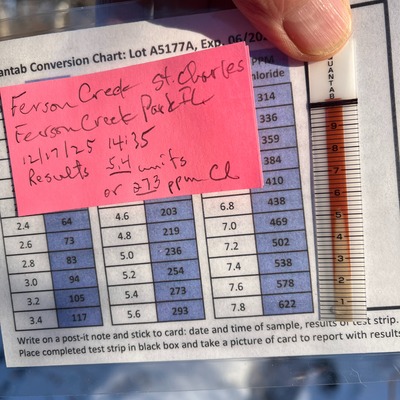 antab Conversion Chart: Lot A5177A, Exp. 06/20
PPM
hloride
Ferson Creek St. Charles
Ferson Creek Park IL
12/17/25 14:35
Results 5.4 units
or 273 ppm Cl
314
336
359
384
410
2.4 64 4.6 203 6.8 438
2.6 73 4.8 219 7.0 469
2.8 83 5.0 236 7.2 502
3.0 94 5.2 254 7.4 538
3.2 105 5.4 273 7.6 578
3.4 117 5.6 293 7.8 622
QUANTAB
9
8
7
6
5
4
3
2
1
Write on a post-it note and stick to card: date and time of sample, results of test strip.
Place completed test strip in black box and take a picture of card to report with results